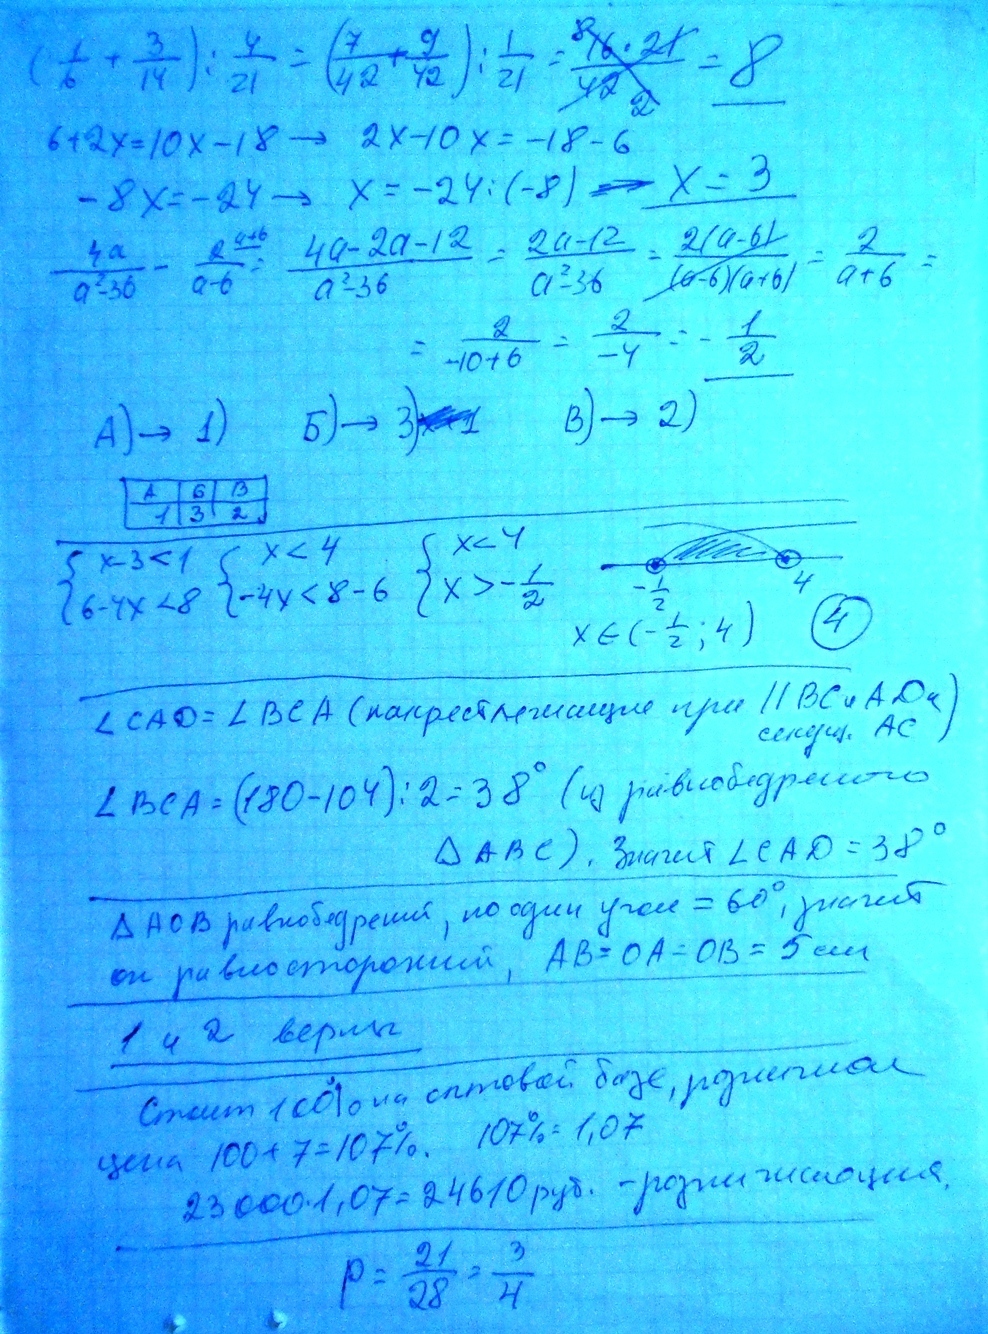 (1/6 + 3/14) : 4/21 = (7/42 + 9/42) : 1/21 = 16·21/42 = 8
6+2x=10x-18 → 2x-10x=-18-6
-8x=-24 → x=-24:(-8) x=3
4a/a²-36 - 2/a-6 = 4a-2a-12/a²-36 = 2a-12/a²-36 = 2(a-6)/(a-6)(a+6) = 2/a+6 =
= 2/-10+6 = 2/-4 = -1/2
А)→ 1) Б)→ 3) В)→ 2)
А Б В
1 3 2
{x-3<1 {x<4 {x<4
{6-4x<8 {-4x<8-6 {x>-1/2
-1/2 4
x∈(-1/2; 4) 4
∠CAD=∠BCA (накрестлежащие при || BC и AD и
секущ. AC)
∠BCA=(180-104):2=38° (из равнобедренного
△ABC). Значит ∠CAD=38°
△AOB равнобедрений, но один угол = 60°, значит
он равносторонний, AB=OA=OB=5 см
1 и 2 верны
Стоит 100% на оптовой базе, розничная
цена 100+7=107%. 107%=1,07
23000·1,07=24610 руб. - розничная цена.
p = 21/28 = 3/4